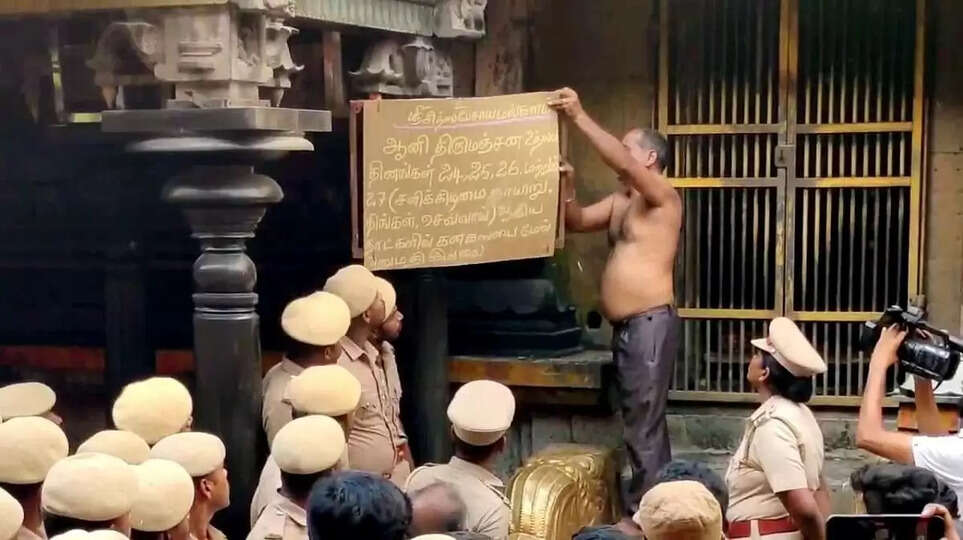 ஆனி திருமஞ்சன
தினங்கள் 24, 25, 26, மற்றும்
27 (சனிக்கிழமை ஞாயிறு,
திங்கள், செவ்வாய்) ஆகிய
நாட்களில் கனகசபை மேல்
அனுமதி இல்லை